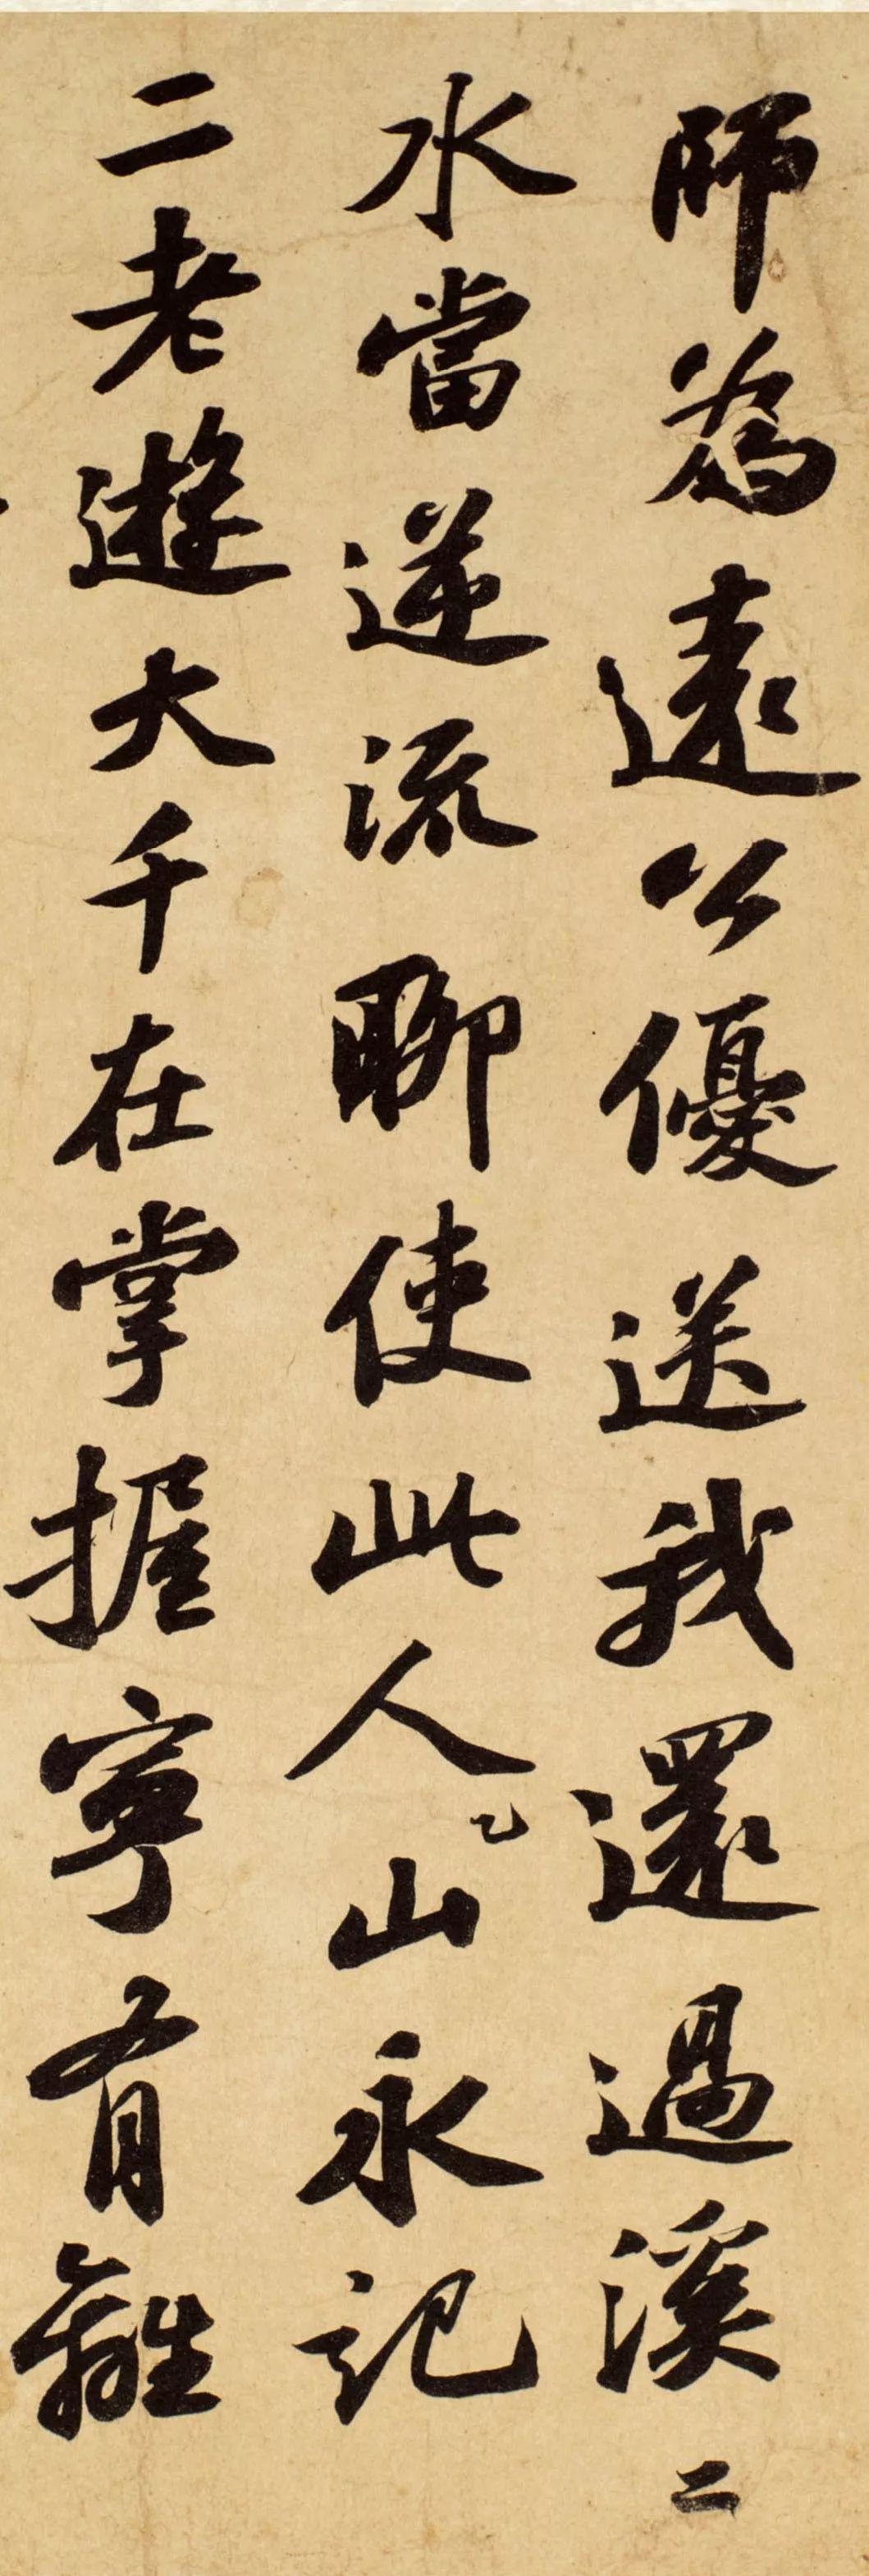 師為遠公優送我還過溪二
水當逆流聊使此人山永記
二老遊大千在掌握寧有離